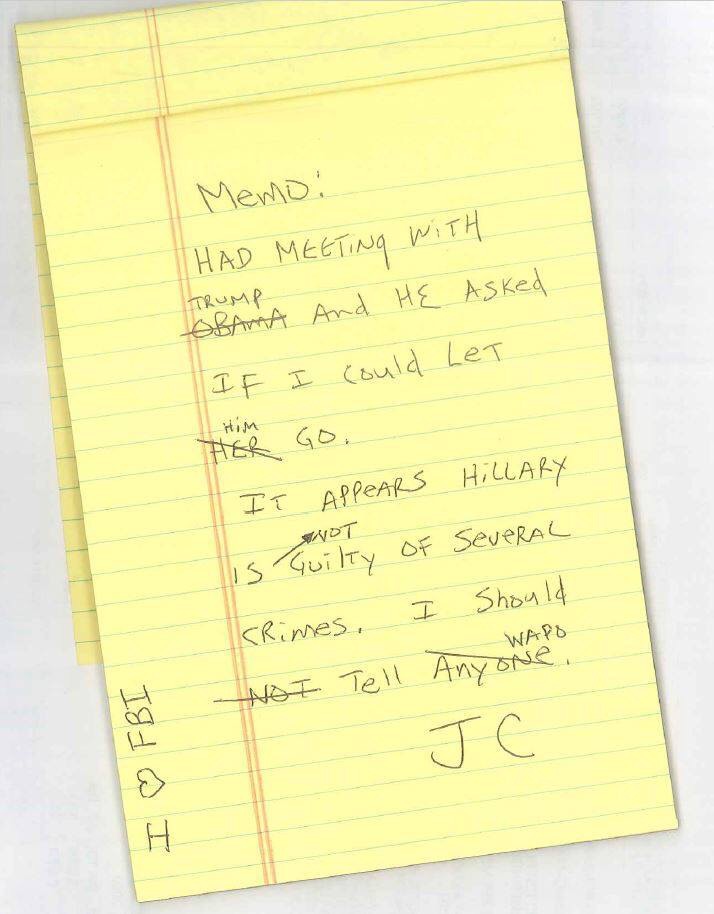 Memo:
HAD MEETING WITH
TRUMP
OBAMA And HE ASKed
IF I Could LeT
HiM
HER GO.
IT APPeARS HiLLARY
NOT
IS GuilTy OF SeveRAL
CRimes. I Should
WAPO
NOT Tell Anyone.
JC
I ♡ FBI